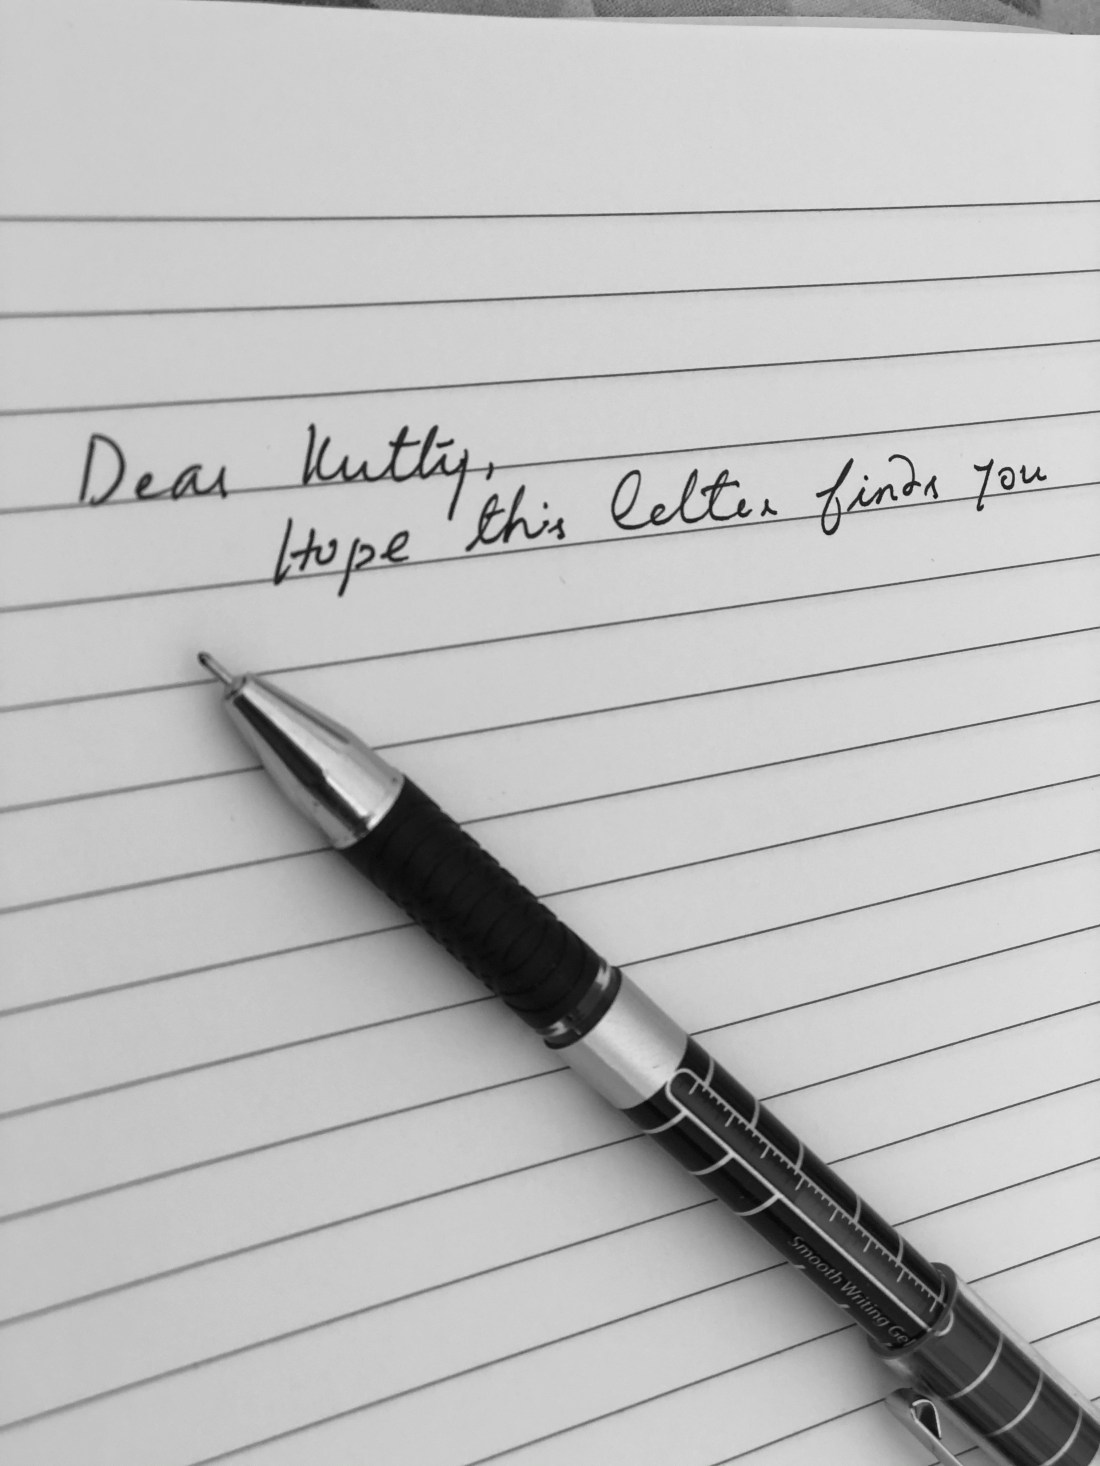 Dear Kutty,
Hope this letter finds you
Smooth Writing Gel